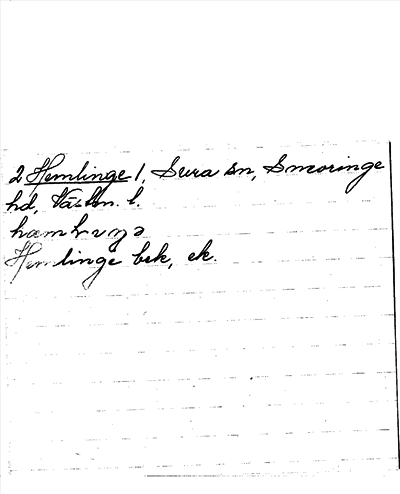 2 Hemlinge 1, Sura sn, Snevringe
hd, Västm. l.
Hemlinge bsk, ek.